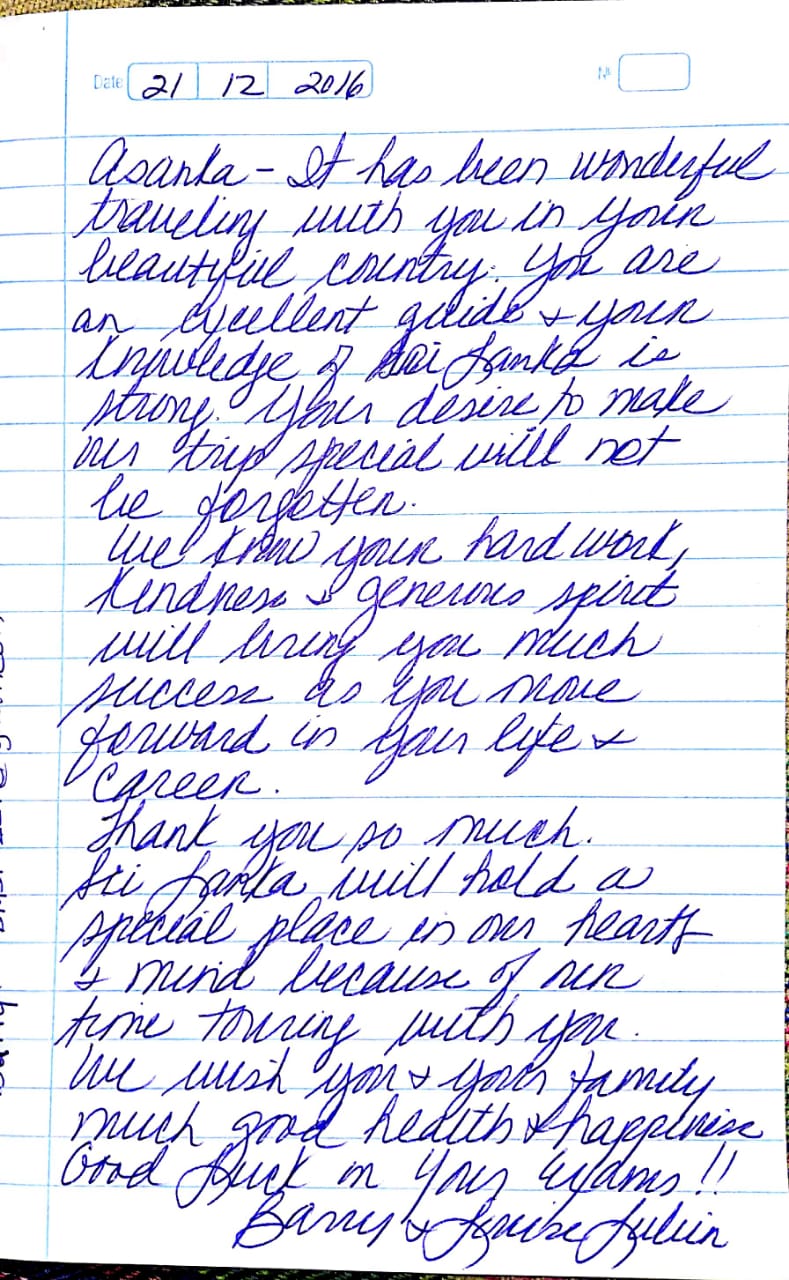 Date 21 12 2016 No
Asanka - It has been wonderful
traveling with you in your
beautiful country. You are
an excellent guide & your
knowledge of Sri Lanka is
strong. Your desire to make
our trip special will not
be forgotten.
We know your hard work,
kindness & generous spirit
will bring you much
success as you move
forward in your life &
career.
Thank you so much.
Sri Lanka will hold a
special place in our hearts
& mind because of our
time touring with you.
We wish you & your family
much good health & happiness
Good Luck on your exams!!
Barry & Louise Julien